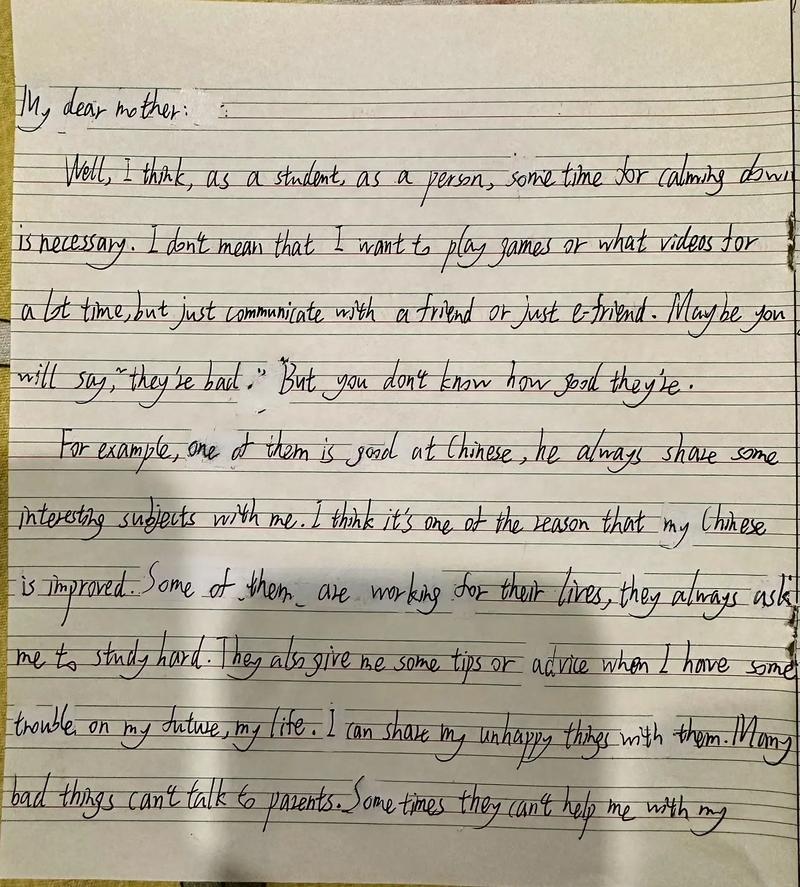 My dear mother:
Well, I think, as a student, as a person, some time for calming down
is necessary. I don't mean that I want to play games or what videos for
a lot time, but just communicate with a friend or just e-friend. Maybe you
will say, "they're bad." But you don't know how good they're.
For example, one of them is good at Chinese, he always share some
interesting subjects with me. I think it's one of the reason that my Chinese
is improved. Some of them are working for their lives, they always ask
me to study hard. They also give me some tips or advice when I have some
trouble on my future, my life. I can share my unhappy things with them. Many
bad things can't talk to parents. Some times they can't help me with my